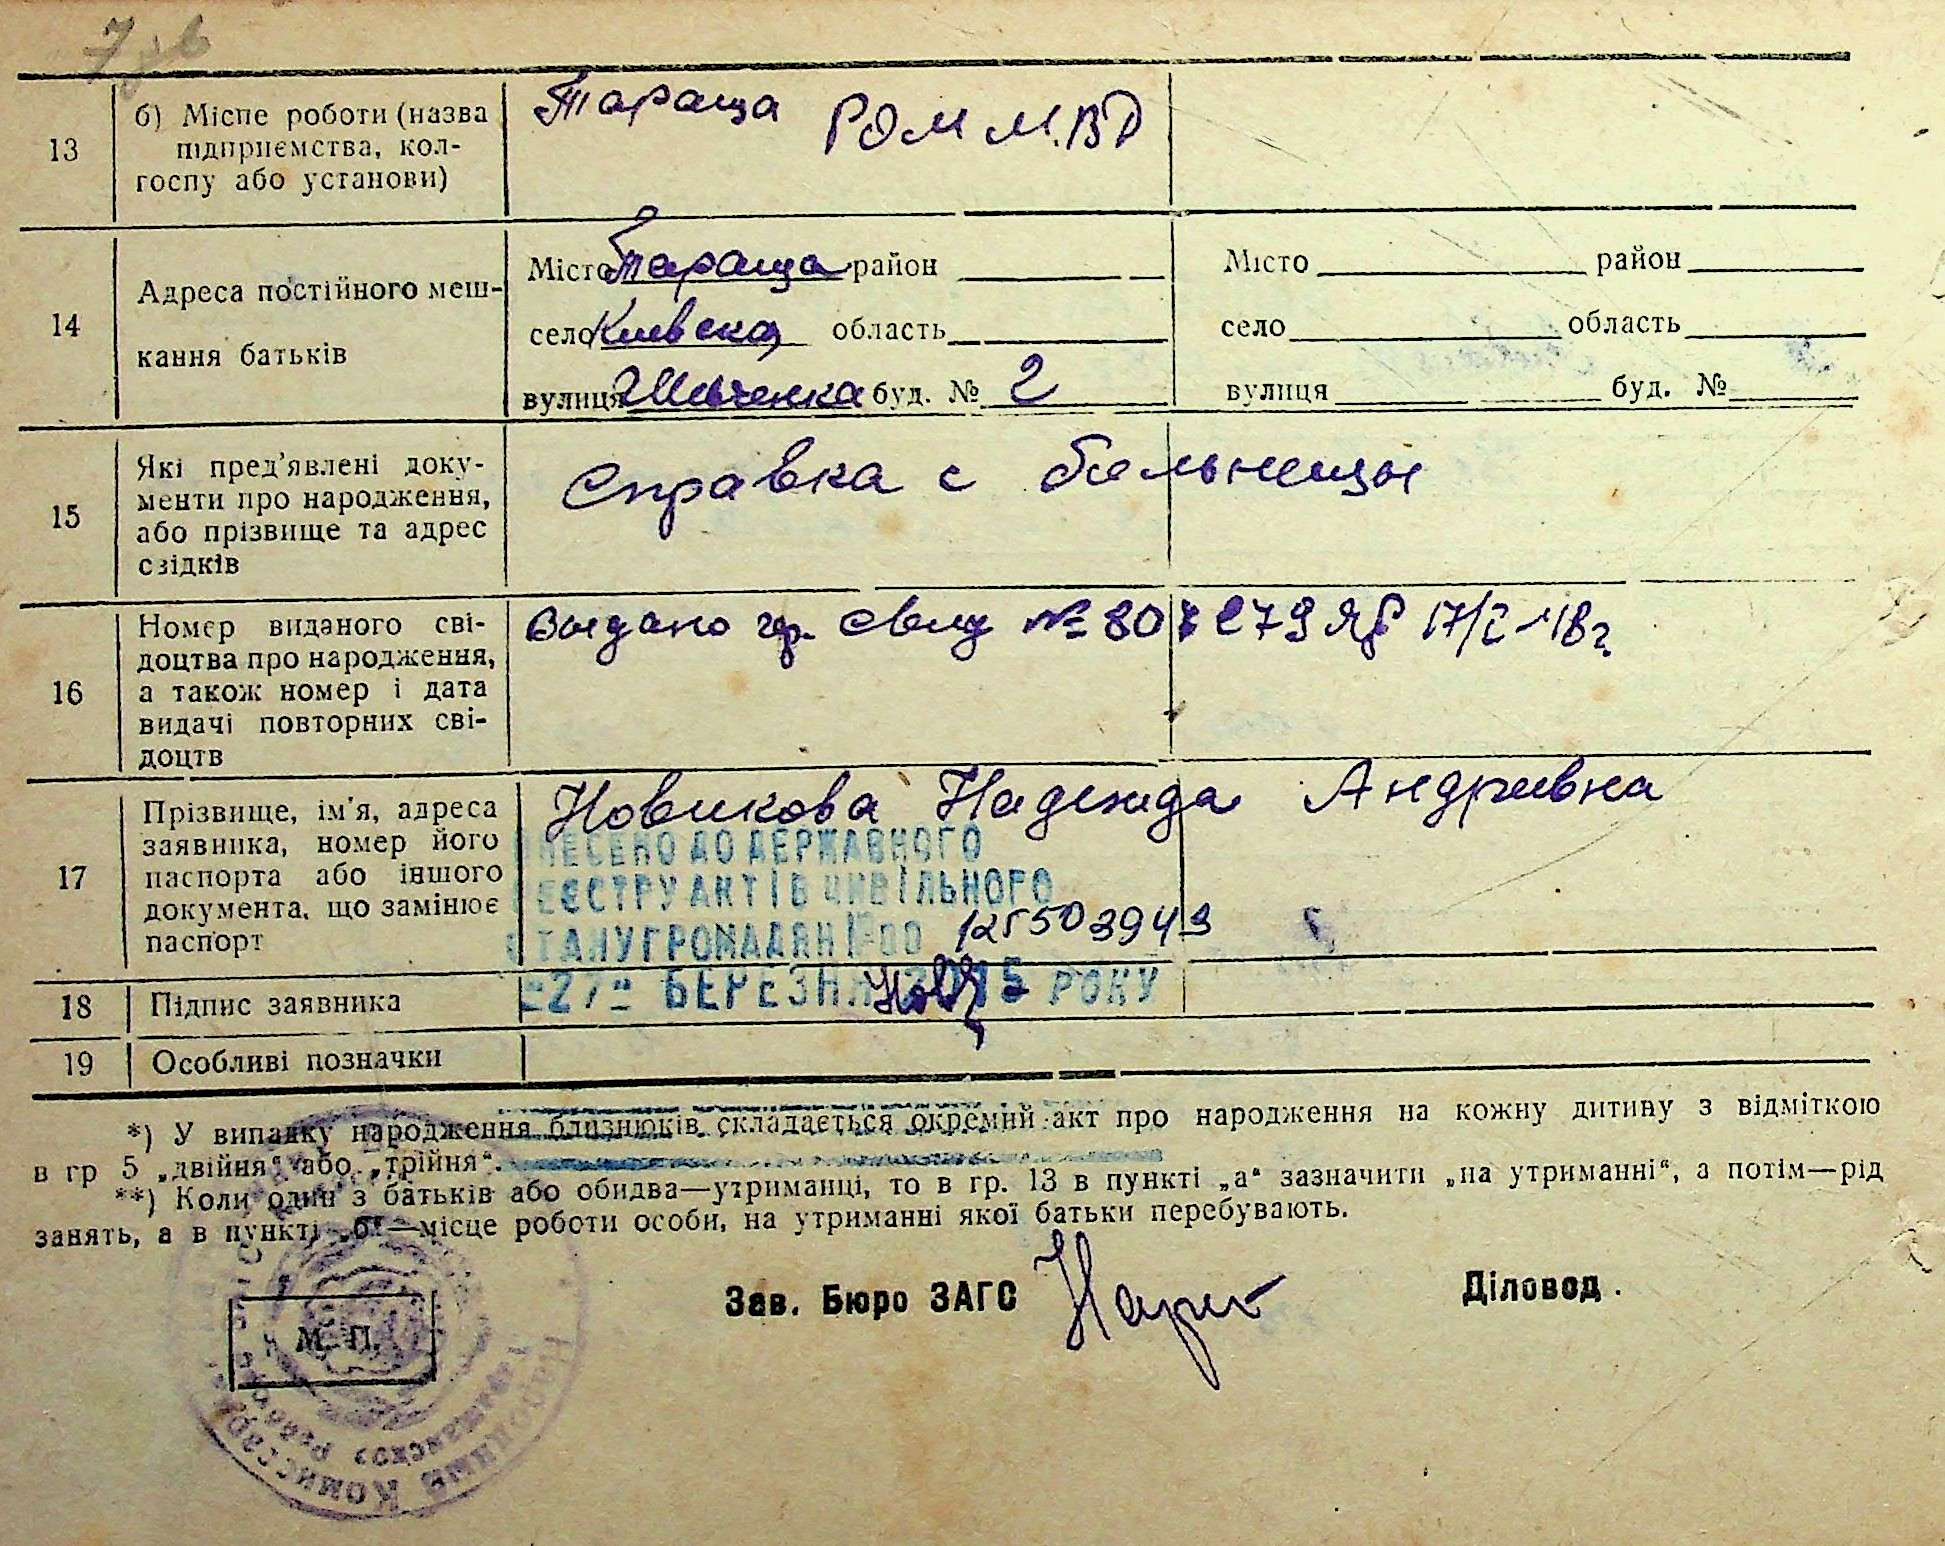 13
б) Місце роботи (назва
підприємства, кол-
госпу або установи)
Тараща РОМ М.ВД
14
Адреса постійного меш-
кання батьків
Місто Тараща район
село Киевска область
вулиця Шевченка буд. № 2
Місто район
село область
вулиця буд. №
15
Які пред'явлені доку-
менти про народження,
або прізвище та адрес
свідків
Справка с больницы
16
Номер виданого сві-
доцтва про народження,
а також номер і дата
видачі повторних сві-
доцтв
Выдано гр.
17
Прізвище, ім'я, адреса
заявника, номер його
паспорта або іншого
документа, що замінює
паспорт
Новикова Надежда Андреевна
ВНЕСЕНО ДО ДЕРЖАВНОГО
РЕЄСТРУ АКТІВ ЦИВІЛЬНОГО
СТАНУ ГРОМАДЯН №00 125503943
"27" БЕРЕЗНЯ 2015 РОКУ
18
Підпис заявника
19
Особливі позначки
*) У випадку народження близнюків складається окремий акт про народження на кожну дитину з відміткою
в гр 5 „двійня“ або „трійня“.
**) Коли один з батьків або обидва—утриманці, то в гр. 13 в пункті „а“ зазначити „на утриманні“, а потім—рід
занять, а в пункті „б“—місце роботи особи, на утриманні якої батьки перебувають.
Зав. Бюро ЗАГС
Діловод.
М. П.